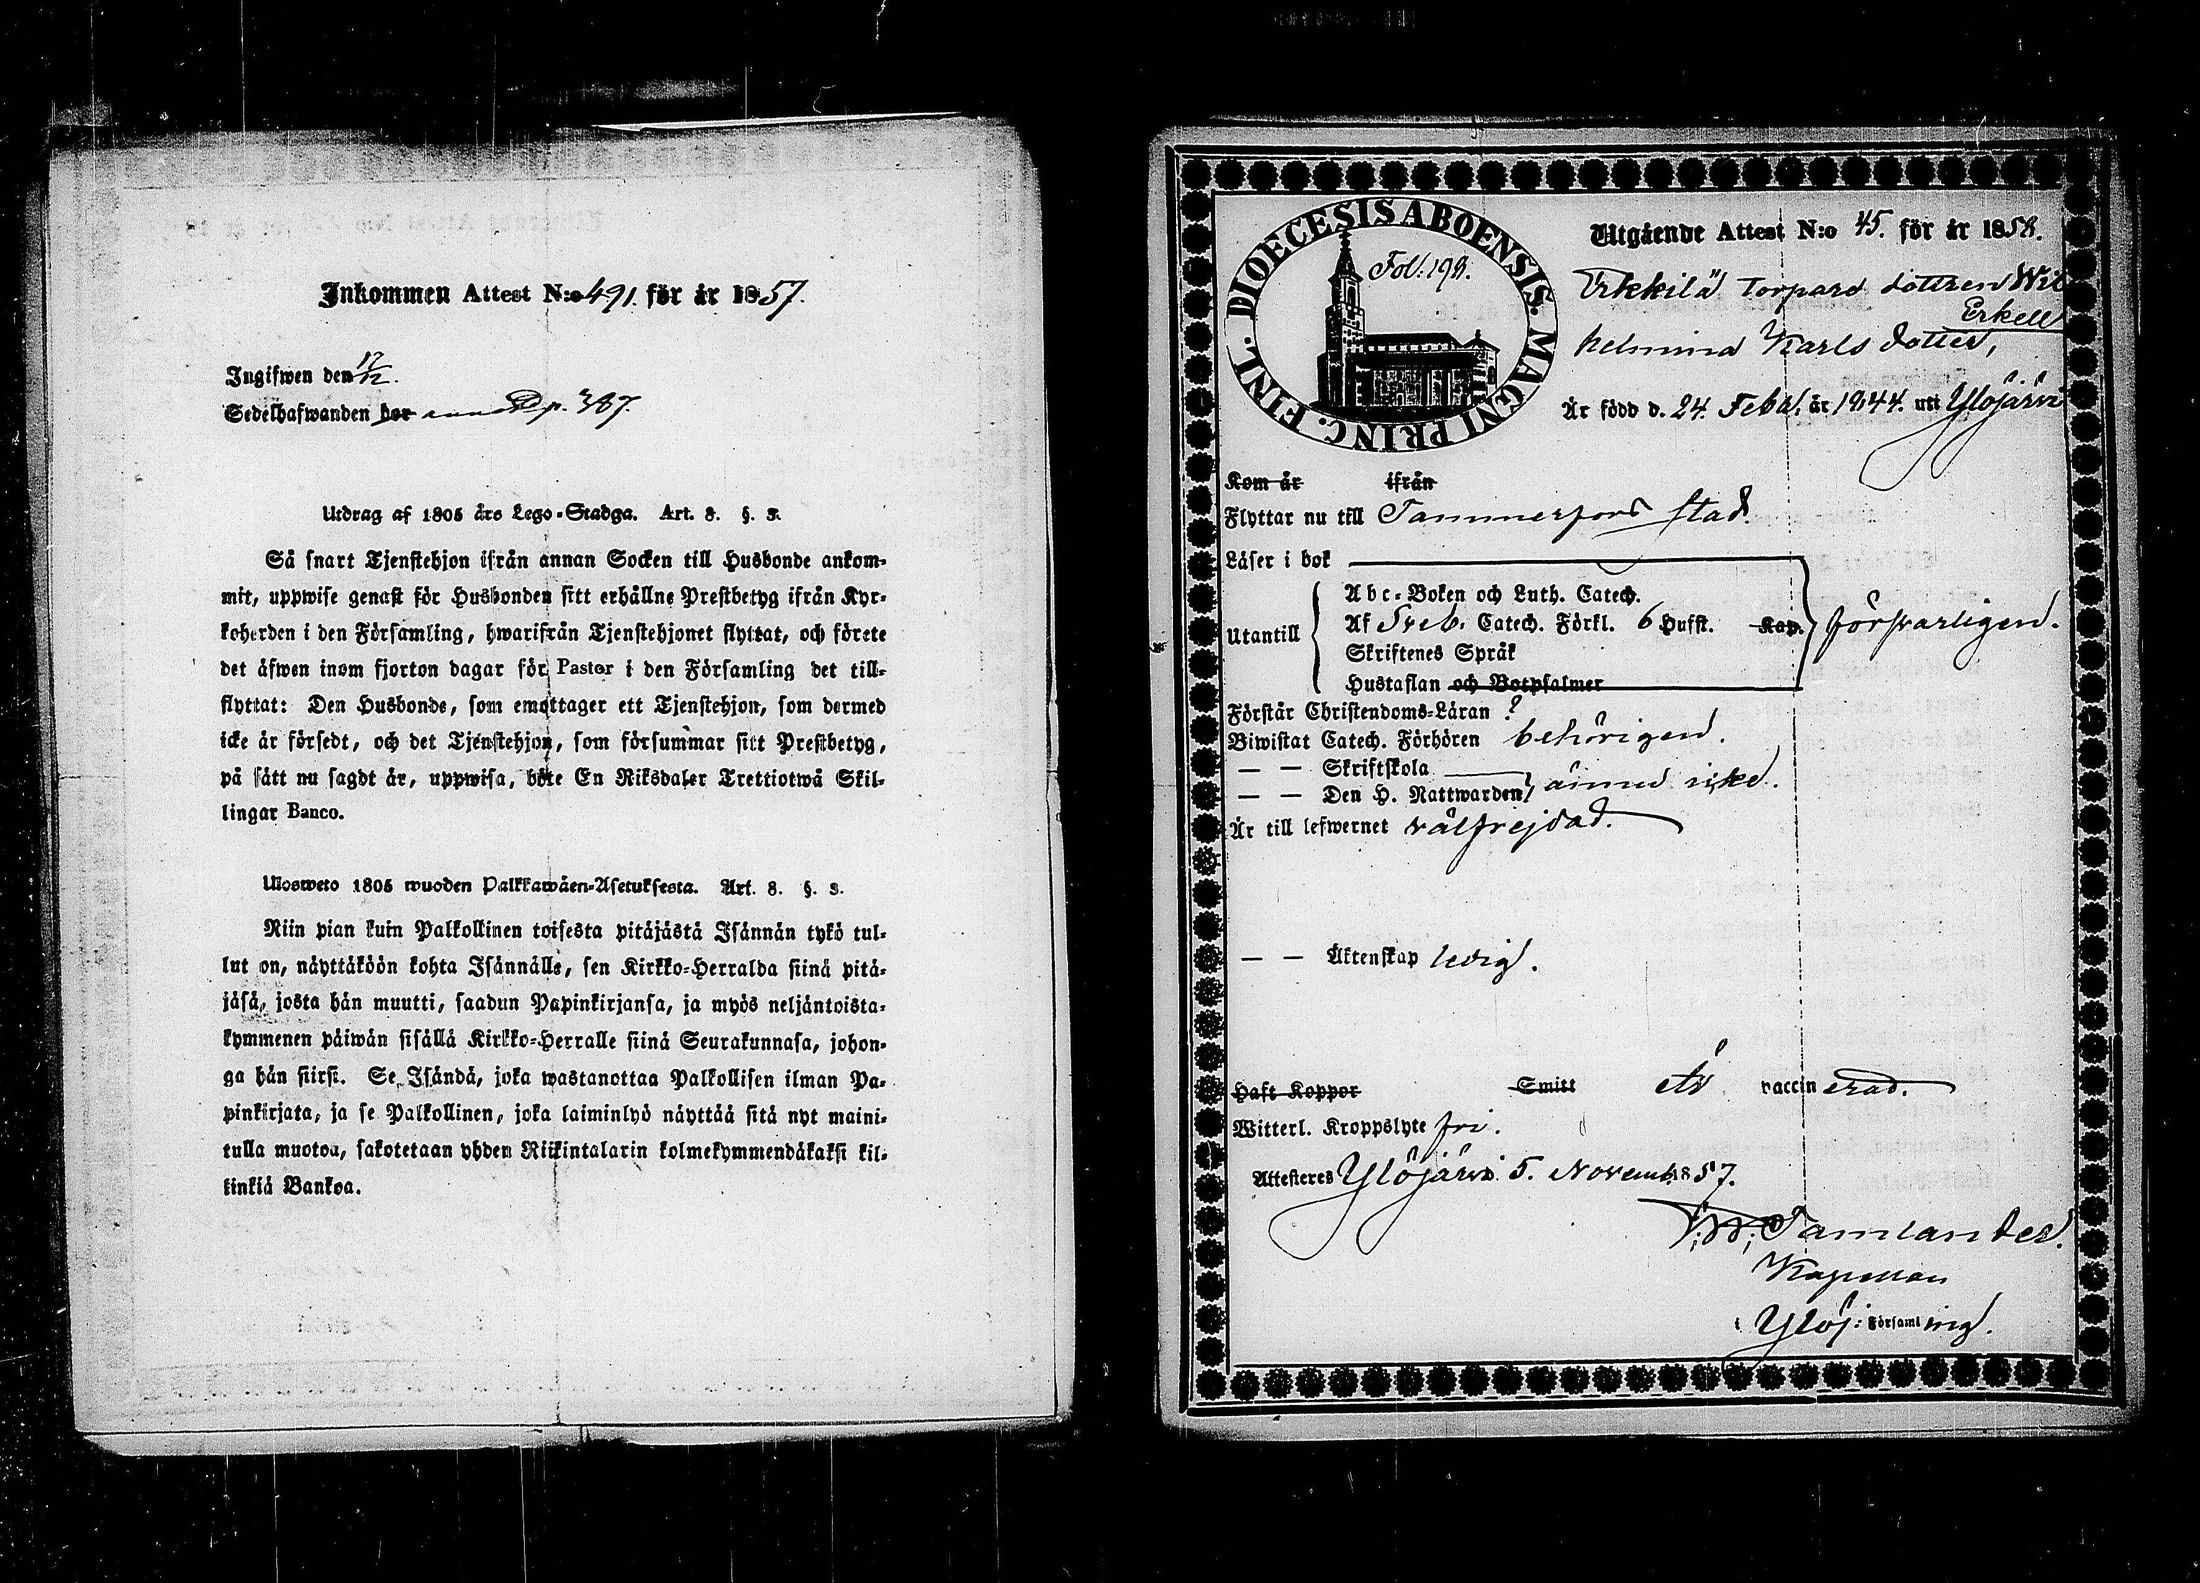 Inkommen Attest N:o 491. för år 1857.
Ingifwen den 17/12.
Sedelhafwanden bor p. 387.
Utdrag af 1805 års Lego-Stadga. Art. 8. §. 3.
Så snart Tjenstehjon ifrån annan Socken till Husbonde ankom-
mit, uppwise genast för Husbonden sitt erhållne Prestbetyg ifrån Kyr-
koherden i den Församling, hwarifrån Tjenstehjonet flyttat, och förete
det äfwen inom fjorton dagar för Pastor i den Församling det till-
flyttat: Den Husbonde, som emottager ett Tjenstehjon, som dermed
icke är försedt, och det Tjenstehjon, som försummar sitt Prestbetyg,
på sätt nu sagdt är, uppwisa, böte En Riksdaler Trettiotwå Skil-
lingar Banco.
Ulosweto 1805 wuoden Palkkawäen-Asetuksesta. Art. 8. §. 3.
Niin pian kuin Palkollinen toisesta pitäjästä Isännän tykö tul-
lut on, näyttäköön kohta Isännälle, sen Kirkko-Herralda siinä pitä-
jäsä, josta hän muutti, saadun Papinkirjansa, ja myös neljäntoista-
kymmenen päiwän sisällä Kirkko-Herralle siinä Seurakunnasa, johon-
ga hän siirsi. Se Isändä, joka wastanottaa Palkollisen ilman Pa-
pinkirjata, ja se Palkollinen, joka laiminlyö näyttää sitä nyt maini-
tulla muotoa, sakotetaan yhden Riikintalarin kolmekymmendäkaksi kil-
linkiä Bankoa.
DIOECESIS ABOENSIS. MAGNI PRINC. FINL.
Fol. 198.
Utgående Attest N:o 45. för år 1858.
Erkkilä Torpare dottren Wil
Erkell
helmina Karls dotter,
Är född d. 24. Febr. år 1844. uti Ylöjärvi
Kom år ifrån
Flyttar nu till Tammerfors stad.
Läser i bok
Utantill
Abc-Boken och Luth. Catech.
Af Sveb. Catech. Förkl. 6 Hufst. Kap.
Skriftenes Språk
Hustaflan och Botpsalmer
försvarligen.
Förstår Christendoms-Läran ?
Biwistat Catech. Förhören behörigen.
— — Skriftskola
— — Den H. Nattwarden
ännu icke.
Är till lefwernet välfrejdad.
— — Äktenskap ledig.
Haft Koppor Smitt är vaccinerad.
Witterl. Kroppslyte fri.
Attesteres Ylöjärvi 5. Novemb. 1857.
Tamlander.
Kapellan
i Ylöj: Församling.